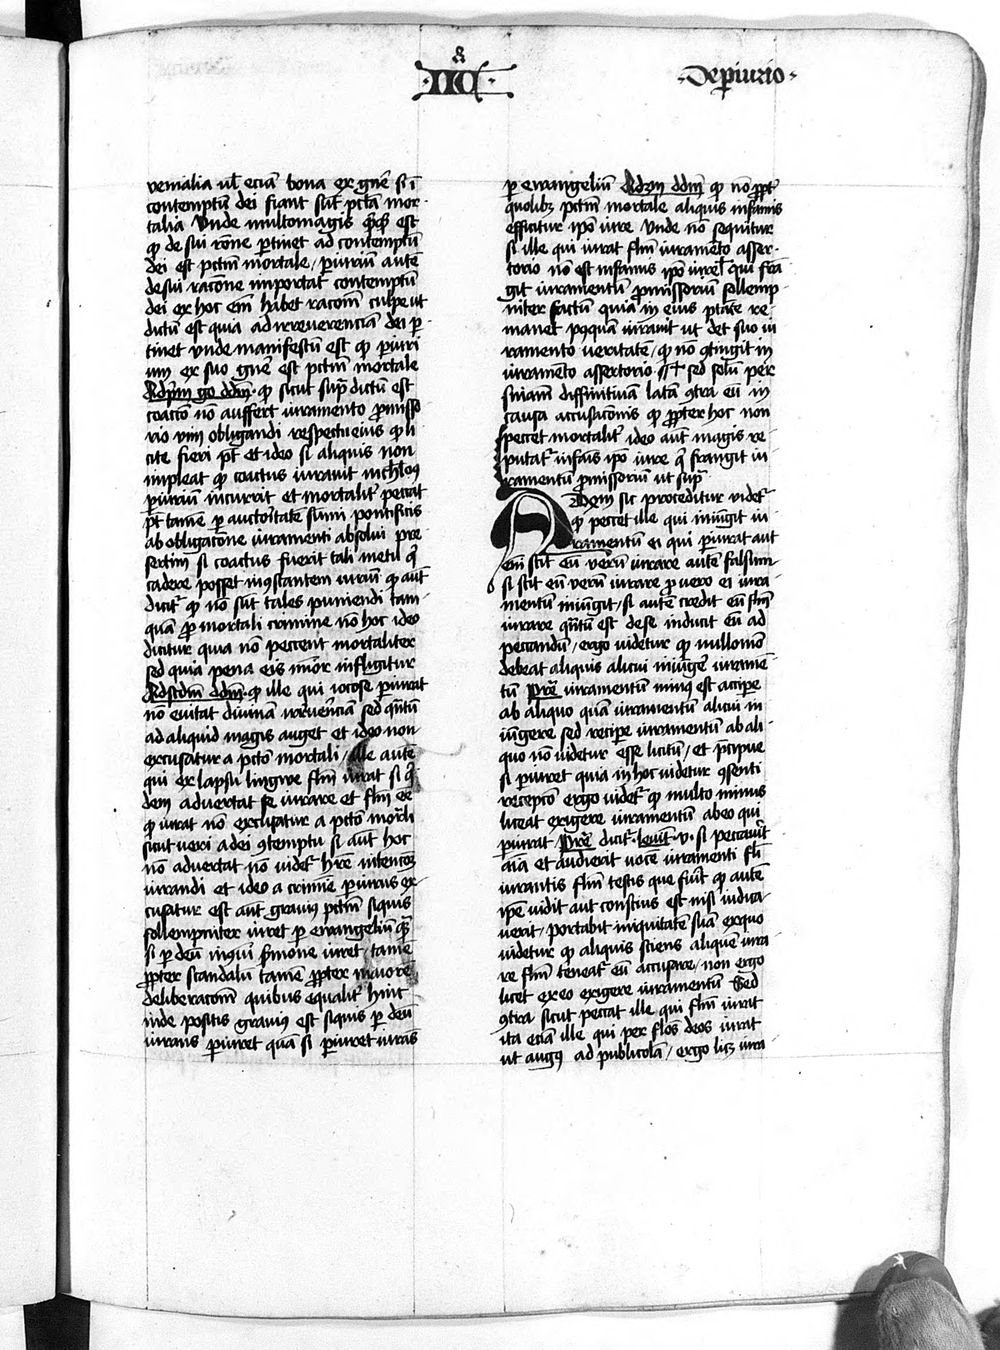 8
De piurio
venialia ul̄ eciā bona ex gn̄e si ī
contemptū dei fiant sūt pctā mor
talia Vnde multomagis q̄cq̄ est
qͥ de sui rōne p̄tinet ad contemptū
dei est pctm̄ mortale / p̄iuriū autē
de sui racōne importat contemptū
dei ex hoc em̄ habet racōm̄ culpe ut
dictū est quia ad irreuerenciā dei p̄
tinet vnde manifestū est qͥ p̄iuri
um ex suo gn̄e est pctm̄ mortale
Ad pm̄ go dd̄m qͥ sicut sup̄ dictū est
coacō nō auffert iuramento p̄misso
rio vim obligandi respectu eius qͥ li
cite fieri pt̄ et ideo si aliquis non
impleat qͥ coactus iurauit nichlo9
p̄iuriū incurrit et mortalit̄ peccat
pt̄ tamē p̄ auctoritatē sūmi pontificis
ab obligacōne iuramenti absolui pre
sertim si coactus fuerit tali metu q̄
cadere posset in 9stantem uirum qͥ aūt
dicit̄ qͥ nō sūt tales puniendi tam
quā p̄ mortali crimine nō hoc ideo
dicitur quia nō peccent mortaliter
sed quia pena eis mīor infligitur
Ad scdm̄ dd̄m qͥ ille qui iocose p̄iurat
nō euitat diuinā irreuerēciā sed qn̄tū
ad aliquid magis auget et ideo non
excusatur a pctō mortali / ille autē
qui ex lapsu lingwe flm̄ iurat si q̄
dem aduertat se iurare et flm̄ eē
qͥ iurat nō excusatur a pctō mor̄li
sicut neri a dei 9temptu si aūt hoc
nō aduertat nō videt̄ hrē intencōz
iurandi et ideo a crimīe p̄iurius ex
cusatur est aūt grauius pctm̄ siquis
sollempniter iuret p̄ ewangeliū q̄
si p̄ deū in qui s̄mone iuret / tamē
p̄pter scandalū tamē p̄pter maiorē
deliberacōm̄ quibus equalit̄ hinc
inde positis grauius est siquis p̄ deū
iurans p̄iuret quā si p̄iuret iurās
p̄ ewangeliū Ad 3m dd̄m qͥ nō p̄pt̄
quolibz pctm̄ mortale aliquis infamis
efficitur ip̄o iure Vnde nō sequitur
si ille qui iurat flm̄ iuramēto asser
torio nō est infamis ip̄o iure qͥ qui frā
git iuramentū p̄missoriū sollemp
niter factū quia in eius p̄tāte re
manet p9quā iurauit ut det suo iu
ramento veritatē / qͥ nō 9tingit in
iuramēto assertorio sed solū per
sniam diffinitiuā latā 9tra eū in
causa accusacōnis qͥ p̄pter hoc non
peccet mortalit̄ ideo aūt magis re
putat̄ infāis ip̄o iure q̄ frangit iu
ramentū p̄missoriū ut sup̄
Ad 4m sic proceditur videt̄
qͥ peccet ille qui iniūgit iu
ramentū ei qui p̄iurat aut
em̄ scit eū verū iurare autē falsum
si scit eū verū iurare p̄ uero ei iura
mentū iniūgit / si autē credit eū flm̄
iurare qn̄tū est de se inducit eū ad
peccandū / ergo videtur qͥ nullomō
debeat aliquis alicui iniūgē iuramē
tū Pret̄ iuramentū minus est accipe
ab aliquo quā iuramentū alicui in
iūgere sed recipe iuramentū ab ali
quo nō videtur esse licitū / et p̄cipue
si p̄iuret quia in hoc videtur 9senti
re p̄iurio ergo videt̄ qͥ multo minus
liceat exigere iuramentū ab eo qui
p̄iurat Pret̄ dicit̄ leuit̄ v si peccauīt
aīa et audierit uocē iuramenti fl̄
iurantis flm̄ testis que fuīt qͥ autē
ip̄e vidit aut conscius est nisi indica
uerit / portabit iniquitatē suā ex quo
videtur qͥ aliquis sciens aliquē iura
re flm̄ teneat̄ eū accusare / non ergo
licet ex eo exigere iuramentū Sed
9tra sicut peccat ille qui flm̄ iurat
ita eciā ille qui per flōs deos iurat
ut aug9 ad publicolā / ergo licz iura